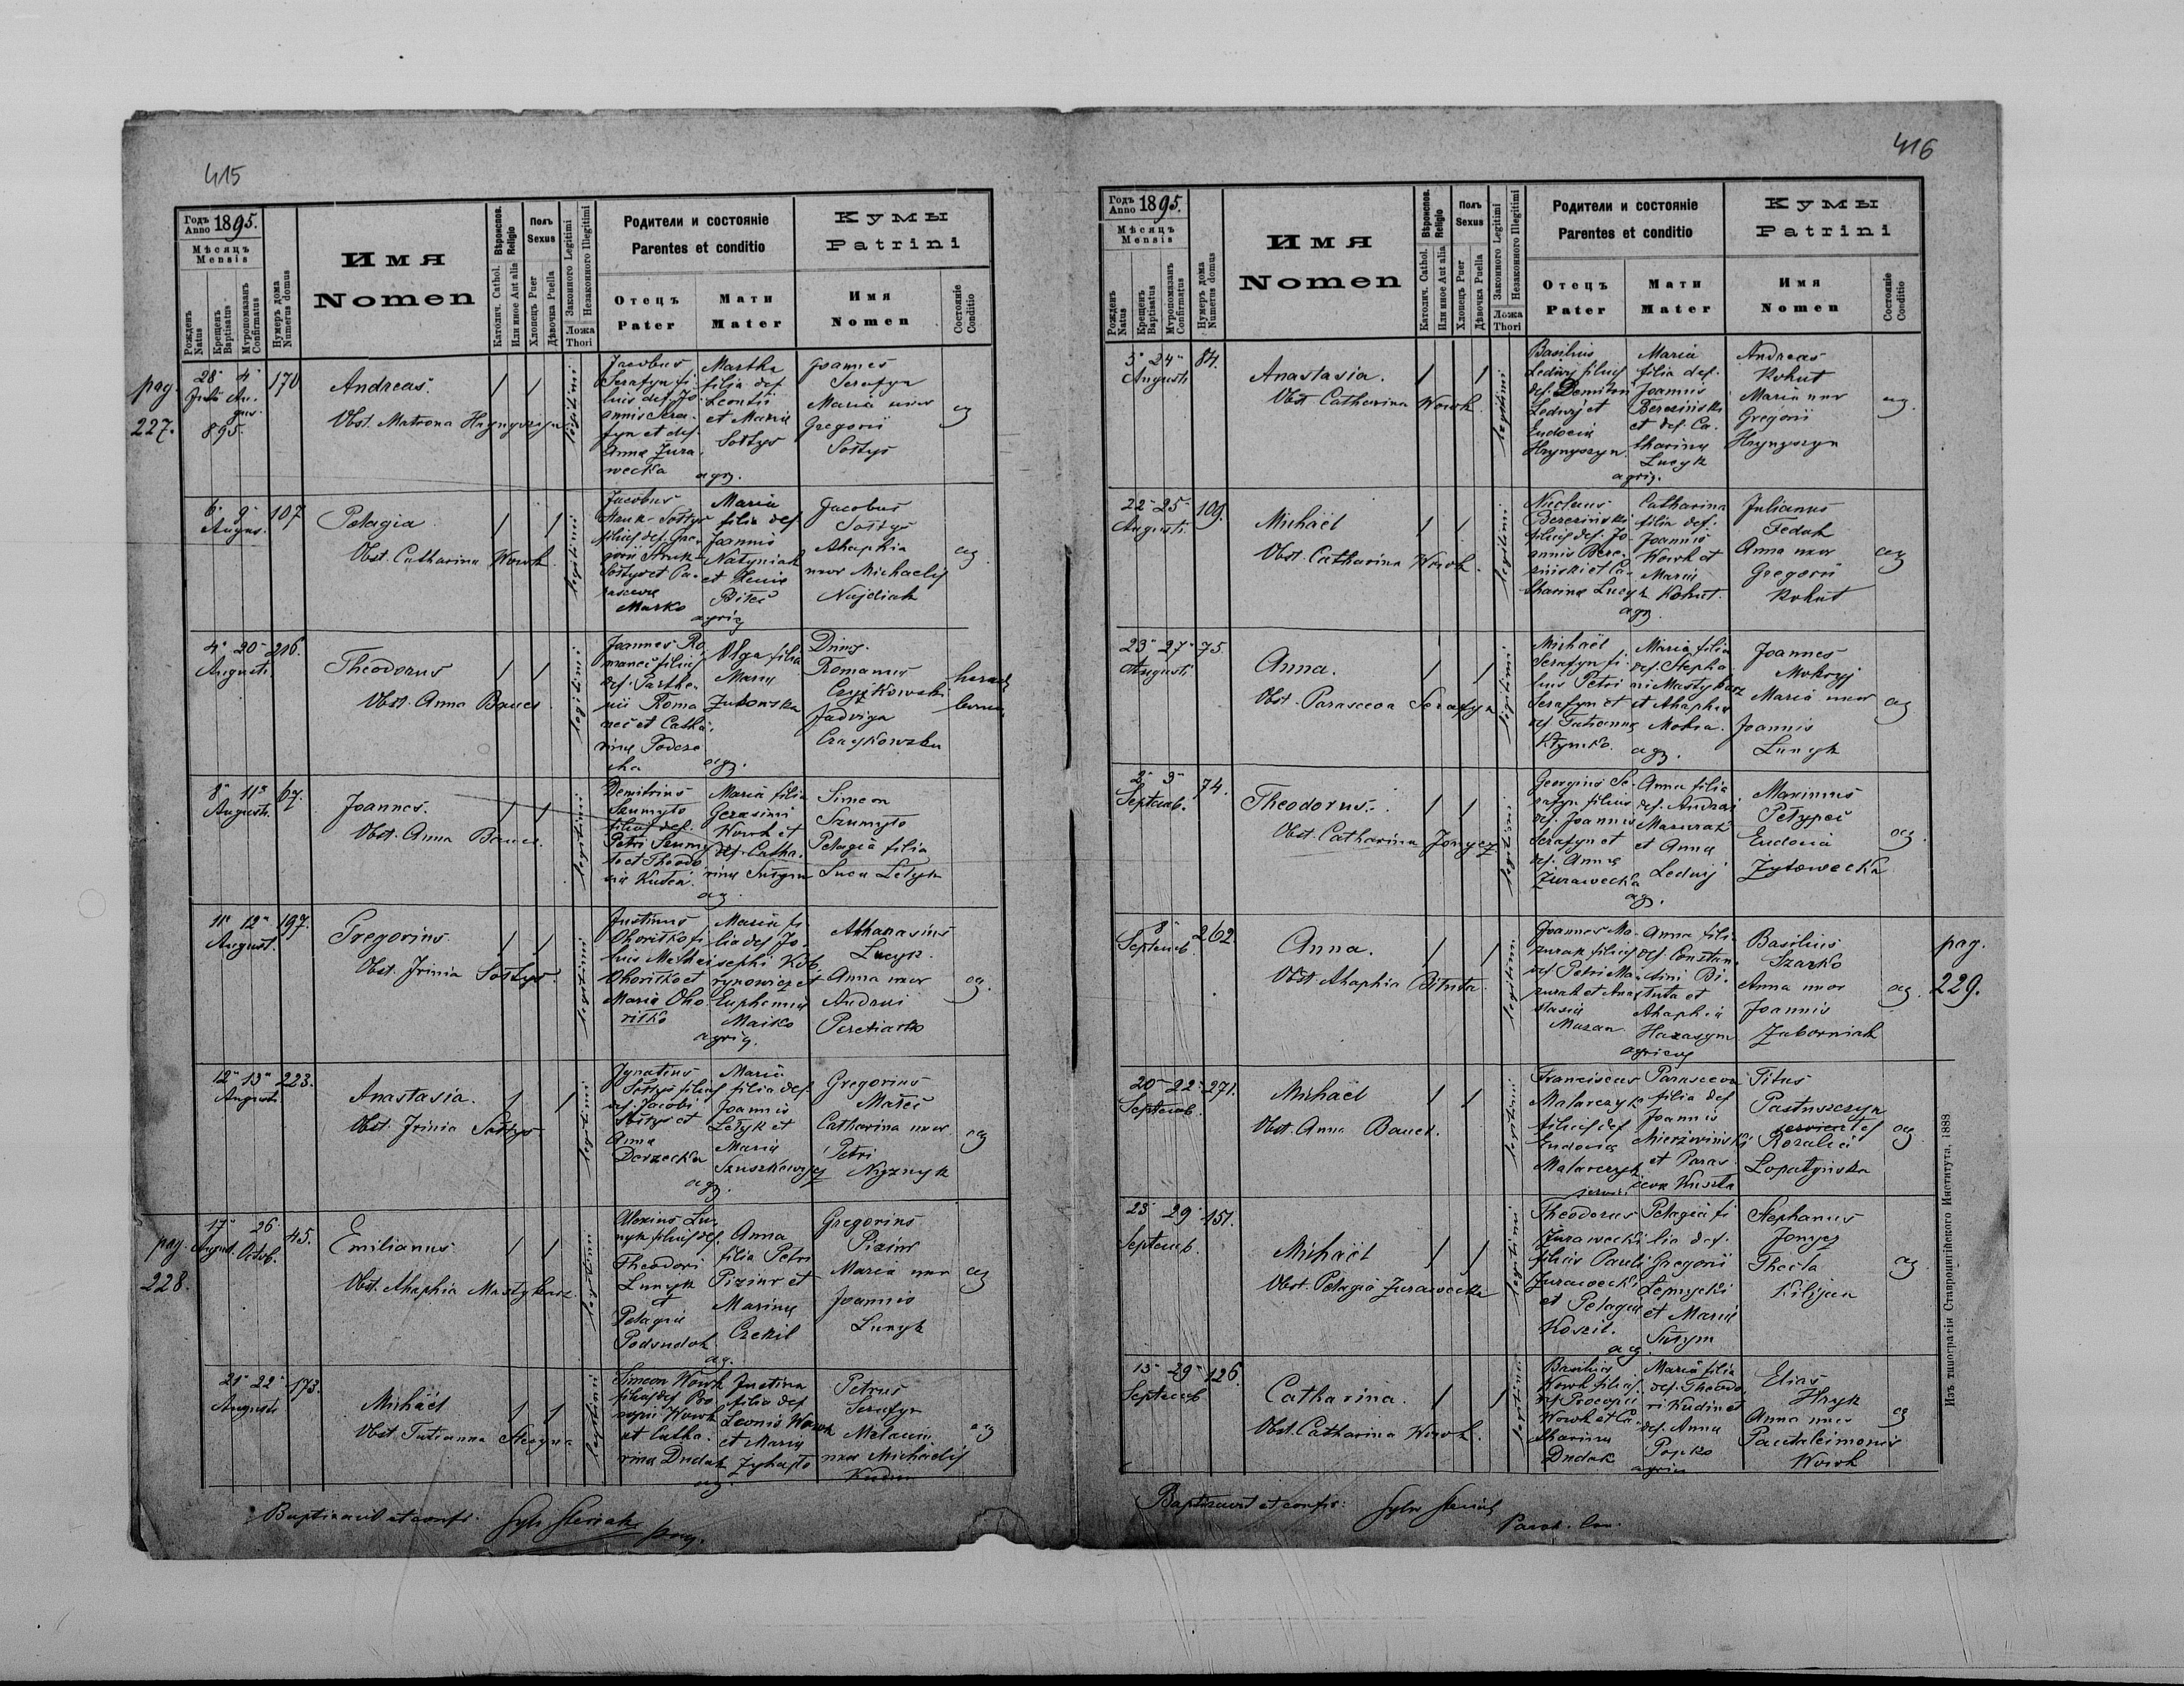 415
Годъ Anno 1895.
Мѣсяцъ Mensis
Рожденъ Natus
Крещенъ Baptisatus
Мѵропомазанъ Confirmatus
Нумеръ дома Numerus domus
Имя
Nomen
Вѣроиспов. Religio
Католич. Cathol.
Или иное Aut alia
Полъ Sexus
Хлопецъ Puer
Дѣвочка Puella
Законного Legitimi
Незаконного Illegitimi
Ложа Thori
Родители и состоянiе
Parentes et conditio
Отецъ Pater
Мати Mater
Кумы
Patrini
Имя Nomen
Состоянiе Conditio
pag. 227.
28 4
895.
170
Andreas.
Obst. Matrona Hrynyszyn
legitimi
Jacobus
Serafyn fi-
lius def. Jo-
annis Sera-
fyn et def.
Anna Żura-
wecka
Martha
filia def
Leontii
et Maria
Sołtys
agr.
Joannes
Serafyn
Maria uxor
Gregorii
Sołtys
ag
6 9
August.
107
Pelagia
Obst. Catharina Wowk.
legitimi
Jacobus
Hruk-Sołtys
filius def. Gre-
gorii Hruk-
Sołtys et Pa-
rascevae
Marko
Maria
filia def
Joannis
Natyniak
et
agric
Jacobus
Sołtys
Ahaphia
uxor Michaelis
Najdiak
ag
4 20
Augusti
216.
Theodorus
Obst. Anna Bauer
legitimi
Joannes Ro-
maneć filius
def. Parthe-
nii Roma-
neć et Catha-
rina
Olga filia
Maria
agr.
Romanus
Czyżkowski
Jadviga
Czajkowska
8 11
Augusti
67.
Joannes.
Obst. Anna Bauer.
legitimi
Demitrius
Szumyło
filius def.
Petri Szumy-
ło et Theodo-
Maria filia
Gerasimi
Wowk et
def. Catha-
rina
ag
Simeon
Szumyło
Pelagia filia
Luca Letyk
11 12
August.
197.
Gregorius.
Obst. Irinia Sołtys
legitimi
Justinus
Ohoritko fi-
lius Mathei
Ohoritko et
Maria Oho-
ritko
Maria fi-
lia def. Jo-
sephi Kob-
rynowicz et
Euphemia
Maiko
agric.
Athanasius
Lucyk.
Anna uxor
Andreae
Peretiatko
ag.
12 13
Augusti
223.
Anastasia.
Obst. Irinia Sołtys
legitimi
Ignatius
Sołtys filius
def. Jacobi
Sołtys et
Anna
Derzecka
Maria
filia def.
Joannis
Letyk et
Maria
Szuszkewycz
agr.
Gregorius
Mateć
Catharina uxor
Petri
Nyznyk
ag
pag. 228.
17 26
August. Octob.
45.
Emilianus
Obst. Ahaphia Mastykasz
legitimi
Alexius Lu-
nyk filius def.
Theodori
Lunyk
et
Pelagia
Podsudok
Anna
filia Petri
Pizior et
Marina
Czekil
ag.
Gregorius
Pizior
Maria uxor
Joannis
Lunyk
ag
21 22
Augusti
173.
Michael
Obst. Tatianna
legitimi
Simeon Wowk
filius def. Pro-
copii Wowk
et Catha-
rina Dudak
Justina
filia def
Leonis Wowk
et Maria
ag.
Petrus
Serafyn
Melania
uxor Michaelis
Kudin
ag
Baptisavit et confir.
416
Годъ Anno 1895.
Мѣсяцъ Mensis
Рожденъ Natus
Крещенъ Baptisatus
Мѵропомазанъ Confirmatus
Нумеръ дома Numerus domus
Имя
Nomen
Вѣроиспов. Religio
Католич. Cathol.
Или иное Aut alia
Полъ Sexus
Хлопецъ Puer
Дѣвочка Puella
Законного Legitimi
Незаконного Illegitimi
Ложа Thori
Родители и состоянiе
Parentes et conditio
Отецъ Pater
Мати Mater
Кумы
Patrini
Имя Nomen
Состоянiе Conditio
5 24
Augusti
84.
Anastasia.
Obst. Catharina Wowk.
legitimi
Basilius
Ledwij filius
def. Demitrii
Ledwij et
Eudocia
Hrynyszyn.
Maria
filia def.
Joannis
Berezinski
et def. Ca-
tharina
Lucyk
agric.
Andreas
Kohut
Maria uxor
Gregorii
Hrynyszyn
ag.
22 25
Augusti
109.
Michaël
Obst. Catharina Wowk.
legitimi
Nicolaus
Berezinski
filius def. Jo-
annis Bere-
zinski et Ca-
tharina Lucyk
Catharina
filia def.
Joannis
Wowk et
Maria
Kohut.
agr.
Julianus
Fedak
Anna uxor
Gregorii
Kohut
ag
23 27
Augusti
75.
Anna.
Obst. Parasceva Serafyn
legitimi
Michaël
Serafyn fi-
lius Petri
Serafyn et
def. Tatianna
Kłymko.
Maria filia
def. Stepha-
ni Mastykasz
et Ahaphia
Mokra.
agr.
Joannes
Mokryj
Maria uxor
Joannis
Lunyk
ag
2 3
Septemb.
74.
Theodorus.
Obst. Catharina Jonycz
legitimi
Georgius Se-
rafyn filius
def. Joannis
Serafyn et
def. Anna
Żurawecka
Anna filia
def. Andreae
Mazurak
et Anna
Ledwij
ag.
Marinus
Petypeć
Eudocia
Żytowecka
ag.
8
Septemb.
262.
Anna.
Obst. Ahaphia Bituta.
legitimi
Joannes Ma-
zurak filius
def. Petri Ma-
zurak et Ana-
stasia
Mazan
Anna filia
def. Constan-
tini Bi-
tuta et
Ahaphia
Harasym
agricol
Basilius
Szarko
Anna uxor
Joannis
Zaborniak
ag.
pag. 229.
20 22
Septemb.
271.
Michael
Obst. Anna Bauer.
legitimi
Franciscus
Malarczyk
filius def
Eudocia
Malarczyk
Parasceva
filia def
Joannis
Mierzwinski
et Paras-
ceva
Titus
Pastuszczyn
servientes
Rozalia
Lopatyńska
ag
23 29
Septemb.
151.
Michaël
Obst. Pelagia Żurawecka
legitimi
Theodorus
Żurawecki
filius Pauli
Żurawecki
et Pelagia
Koszil.
Pelagia fi-
lia def.
Gregorii
Lepnycki
et Maria
ag.
Stephanus
Jonycz
Thecla
Kilijan
ag
15 29
Septemb
126.
Catharina.
Obst. Catharina Wowk.
legitimi
Basilius
Wowk filius
def. Procopii
Wowk et Ca-
tharina
Dudak
Maria filia
def. Theodo-
ri Kudin et
def. Anna
Popko
agric
Elias
Hryk
Anna uxor
Pantaleimonis
Wowk
ag
Baptisavit et confir:
Изъ типографiи Ставропигiйского Института. 1888